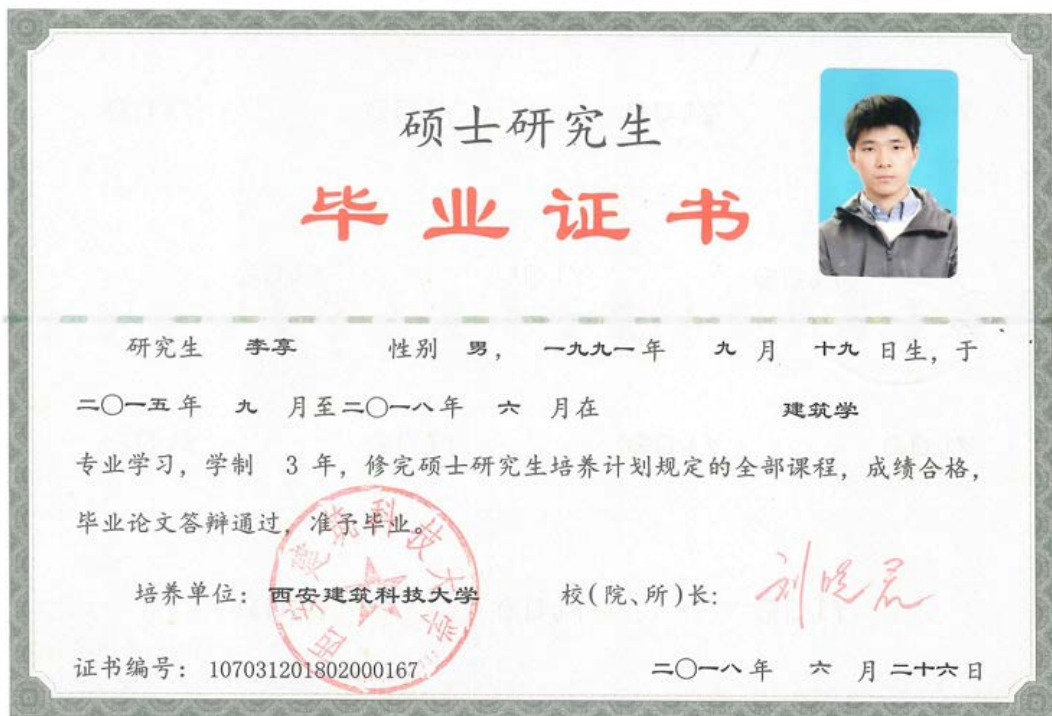 硕士研究生
毕业证书
研究生 李享 性别 男， 一九九一 年 九 月 十九 日生，于
二〇一五 年 九 月至 二〇一八 年 六 月在 建筑学
专业学习，学制 3 年，修完硕士研究生培养计划规定的全部课程，成绩合格，
毕业论文答辩通过，准予毕业。
西安建筑科技大学
培养单位：西安建筑科技大学 校(院、所)长: 刘晓君
证书编号： 107031201802000167 二〇一八 年 六 月 二十六 日